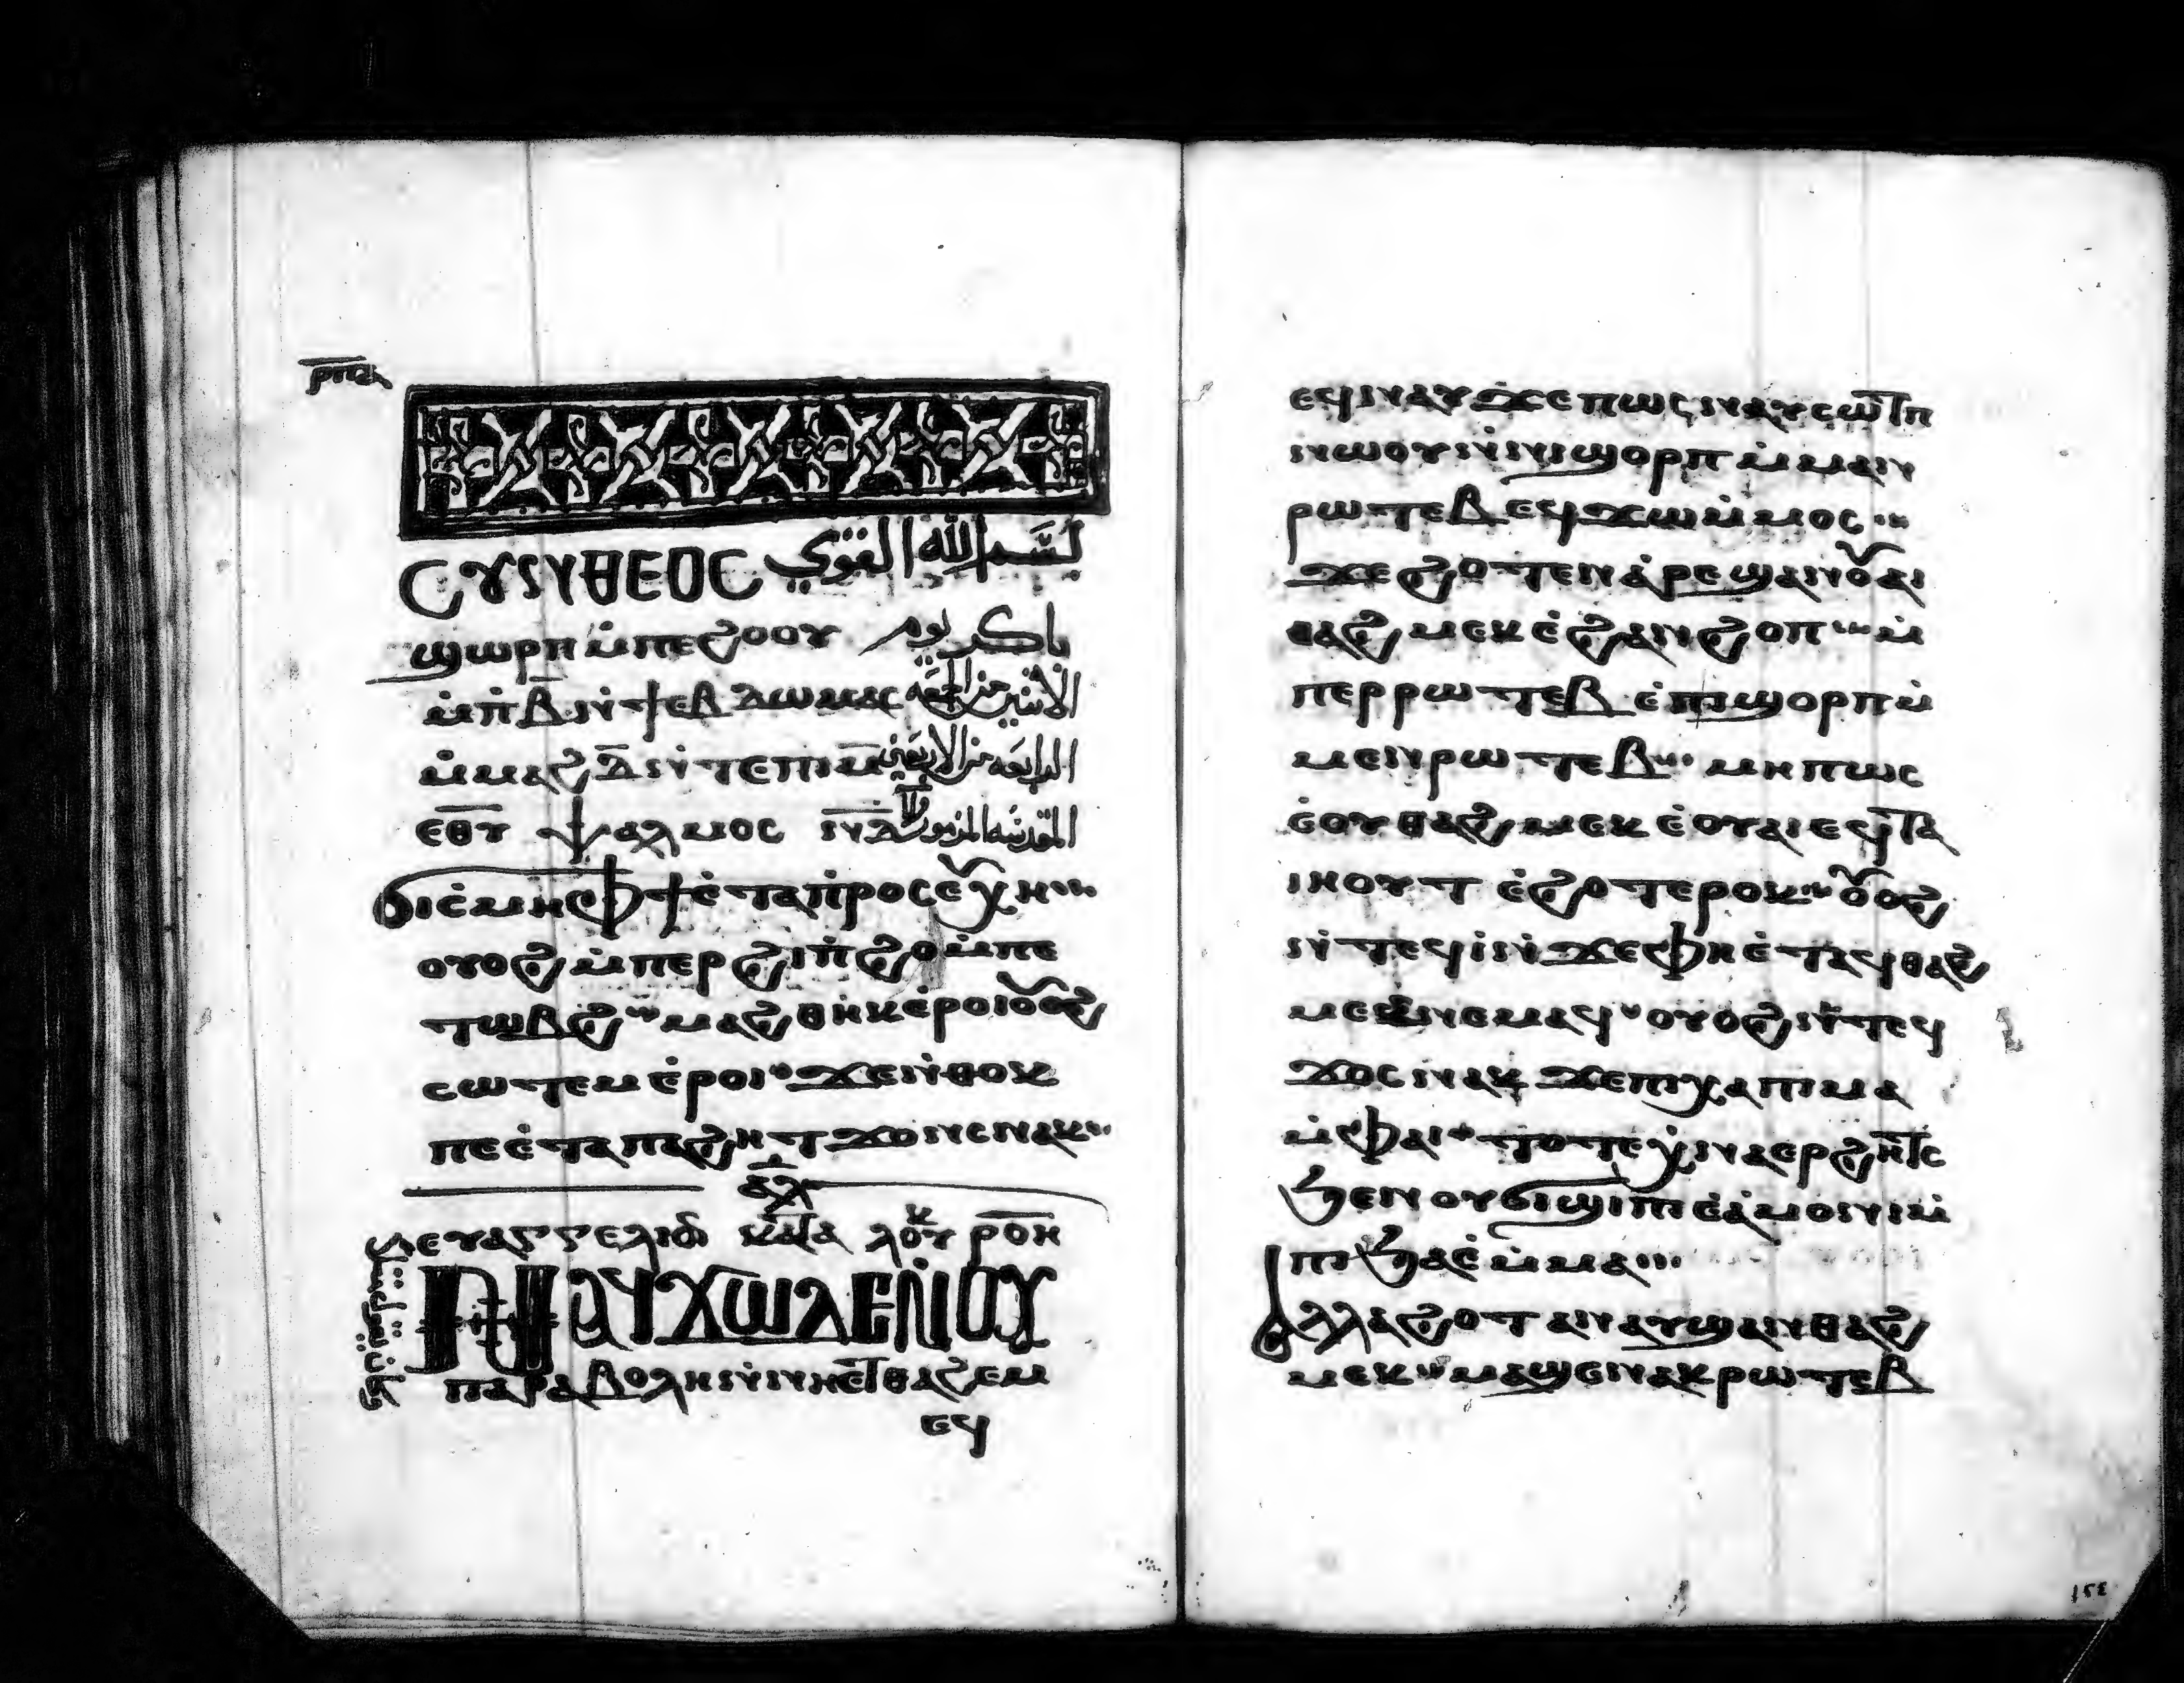 ⲣⲡⲁ
ⲤⲨⲚⲐⲈⲞⲤ بسم الله القوي
ϣⲱⲣⲡ ⲙ̇ⲡⲉϩⲟⲟⲩ باكر يوم
ⲙ̇ⲡ̇ⲃ̅ ⲛ̇ϯⲉⲃⲇⲱⲙⲁⲥ الاثنين من الجمعة
ⲙ̇ⲙⲁϩⲇ̅ ⲛ̇ⲧⲉⲡⲓⲙ̅ الرابعة من الاربعين
ⲉⲑⲩ ⲯⲁⲗⲙⲟⲥ ⲛ̅ⲇ̅ المقدسة المزمور
ϭⲓⲥ̇ⲙⲏ ⲫϯ ⲉ̇ⲧⲁⲡ̇ⲣⲟⲥⲉⲩⲭⲏ
ⲟⲩⲟϩ ⲙ̇ⲡⲉⲣϩⲓⲡ̇ϩⲟ ⲙ̇ⲡⲉ
ⲧⲱⲃϩ ⲙⲁϩⲑⲏⲕ ⲉ̇ⲣⲟⲓ ⲟⲩⲟϩ
ⲥⲱⲧⲉⲙ ⲉ̇ⲣⲟⲓ ϫⲉ ⲛ̇ⲑⲟⲕ
ⲡⲉ ⲉ̇ⲧⲁ ⲡⲁϩⲏⲧ ϫⲟⲥ ⲛⲁⲕ
ⲁⲗ
ⲉⲩⲁⲅⲅⲉⲗⲓⲟⲛ ⲕⲁⲧⲁ ⲗⲟⲩⲕ ⲣⲟⲏ
ⲚⲀϤϪⲰ ⲆⲈ ⲚⲞⲨ
ⲡⲁⲣⲁⲃⲟⲗⲏ ⲛ̇ⲛⲏⲉⲧⲑⲁϩⲉⲙ
ⲉϥ
ⲉϥⲛⲁⲩ ϫⲉ ⲡⲱⲥ ⲛⲁⲩⲥⲱⲧⲡ
ⲛⲱⲟⲩ ⲛ̇ⲛⲓϣⲟⲣⲡ ⲙ̇ⲙⲁⲛ
ⲣⲱⲧⲉⲃ ⲉϥϫⲱ ⲙ̇ⲙⲟⲥ
ϫⲉ ϩⲟⲧⲉⲛ ⲁ̇ⲣⲉϣⲁⲛ ⲟⲩⲁⲓ
ⲑⲁϩⲙⲉⲕ ⲉ̇ϩⲁⲛϩⲟⲡ ⲙ̇
ⲡⲉⲣⲣⲱⲧⲉⲃ ⲉ̇ⲡⲓϣⲟⲣⲡ ⲙ̇
ⲙⲉⲛⲣⲱⲧⲉⲃ ⲙⲏⲡⲱⲥ
ⲉ̇ⲟⲩⲑⲁϩⲙⲉⲕ ⲉ̇ⲟⲩⲁⲓ ⲉϥⲧⲁ
ⲓⲏⲟⲩⲧ ⲉ̇ϩⲟⲧⲉⲣⲟⲕ ⲟⲩⲟϩ
ⲛ̇ⲧⲉϥⲓ̇ ⲛ̇ϫⲉ ⲫⲏ ⲉ̇ⲧⲁϥⲑⲁϩ
ⲙⲉⲕ ⲛⲉⲙⲁϥ ⲟⲩⲟϩ ⲛ̇ⲧⲉϥ
ϫⲟⲥ ⲛⲁⲕ ϫⲉ ⲡⲓⲭⲁⲡⲓⲙⲁ
ⲙ̇ⲫⲁⲓ ⲧⲟⲧⲉ ⲭ̇ⲛⲁⲉⲣϩⲏⲧⲥ
ϧⲉⲛ ⲟⲩϭⲓϣⲓⲡⲓ ⲉ̇ⲁ̇ⲙⲟⲛⲓ ⲙ̇
ⲡⲓϧⲁⲉ̇ ⲙ̇ⲙⲁ
ⲁⲗⲗⲁ ϩⲟⲧⲁⲛ ⲁⲩϣⲁⲛⲑⲁϩ
ⲙⲉⲕ ⲙⲁϣⲉⲛⲁⲕ ⲣⲱⲧⲉⲃ
١٥٤